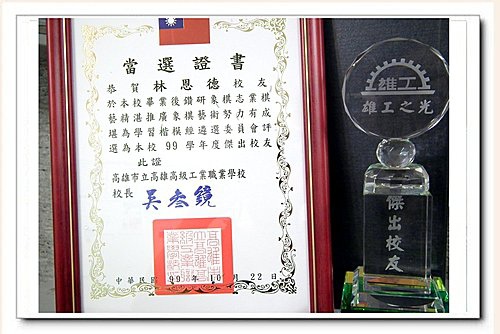 當選證書
恭賀 林恩德 校友
於本校畢業後鑽研象棋志業棋
藝精湛推廣象棋藝術力有成
堪為學習楷模經遴選委員會評
選為本校99學年度傑出校友
此證
高雄市立高雄高級工業職業學校
校長 吳參鏡
中華民國 99 年 10 月 22 日
雄工
雄工之光
傑出校友